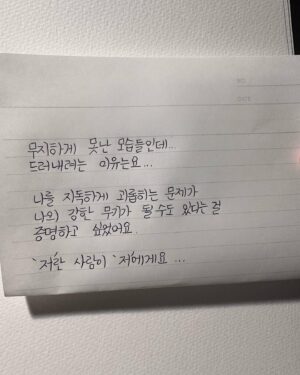 NO.
DATE
무지하게 못난 모습들인데..
드러내려는 이유는요...
나를 지독하게 괴롭히는 문제가
나의 강한 무기가 될 수도 있다는 걸
증명하고 싶었어요.
'저'란 사람이 '저'에게요 ...